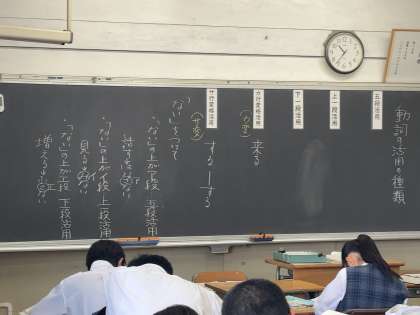 動詞の活用の種類
五段活用
上一段活用
下一段活用
カ行変格活用
(カ変)
来る
サ行変格活用
(サ変)
する ーする
「ない」をつけて
・「ない」の上がア段 五段活用
・「ない」の上がイ段 上一段活用
見る ない
イ
・「ない」の上がエ段 下一段活用
増える
エ